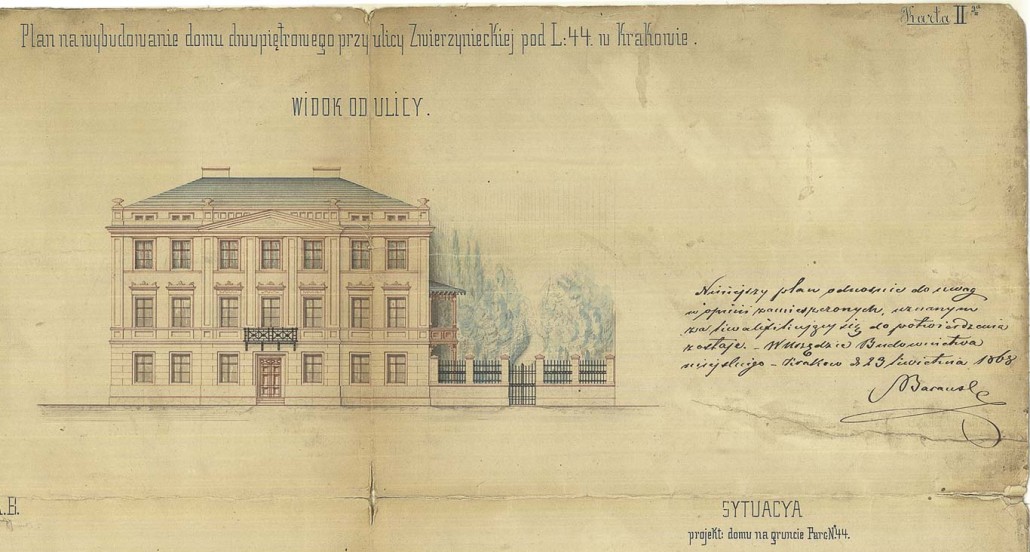 Karta II
Plan na wybudowanie domu dwupiętrowego przy ulicy Zwierzynieckiej pod L: 44. w Krakowie.
WIDOK OD ULICY.
Niniejszy plan odnośnie do uwag
w opinii zamieszczonych, uznanym
za kwalifikujący się do potwierdzenia
zostaje. – W Urzędzie Budownictwa
miejskiego – Kraków d 23 kwietnia 1868
.B.
SYTUACYA
projekt: domu na gruncie Parc Nº 44.